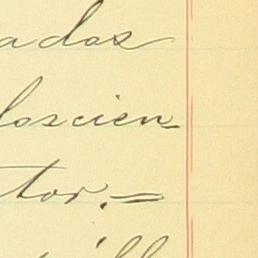 ados
doscien
tor.=